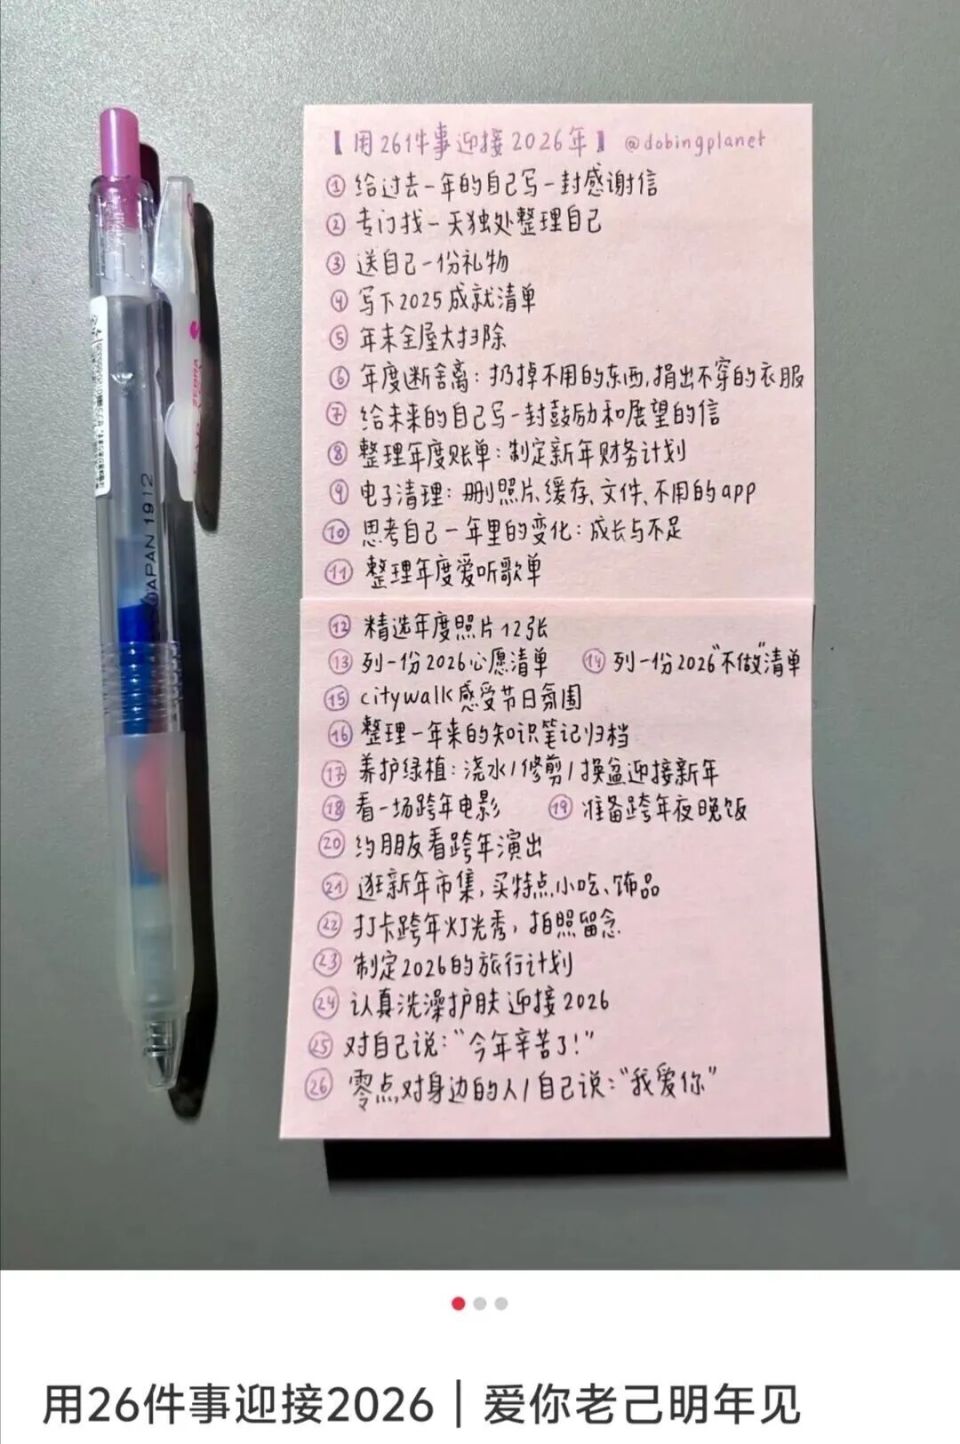 【用26件事迎接2026年】 @dobingplanet
① 给过去一年的自己写一封感谢信
② 专门找一天独处整理自己
③ 送自己一份礼物
④ 写下2025成就清单
⑤ 年末全屋大扫除
⑥ 年度断舍离：扔掉不用的东西,捐出不穿的衣服
⑦ 给未来的自己写一封鼓励和展望的信
⑧ 整理年度账单：制定新年财务计划
⑨ 电子清理：删照片、缓存、文件、不用的app
⑩ 思考自己一年里的变化：成长与不足
⑪ 整理年度爱听歌单
⑫ 精选年度照片12张
⑬ 列一份2026心愿清单 ⑭ 列一份2026"不做"清单
⑮ citywalk感受节日氛围
⑯ 整理一年来的知识笔记归档
⑰ 养护绿植：浇水/修剪/换盆迎接新年
⑱ 看一场跨年电影 ⑲ 准备跨年夜晚饭
⑳ 约朋友看跨年演出
㉑ 逛新年市集,买特点小吃、饰品
㉒ 打卡跨年灯光秀，拍照留念
㉓ 制定2026的旅行计划
㉔ 认真洗澡护肤 迎接2026
㉕ 对自己说："今年辛苦了!"
㉖ 零点对身边的人/自己说："我爱你"
JAPAN 1912
用26件事迎接2026｜爱你老己明年见